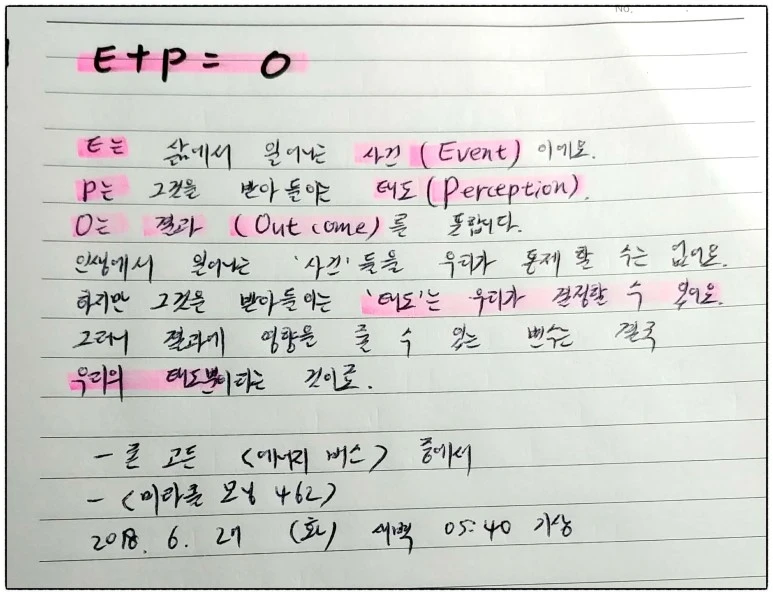 No.
E+P = O
E는 삶에서 일어나는 사건 (Event) 이에요.
P는 그것을 받아들이는 태도 (Perception).
O는 결과 (Outcome)를 뜻합니다.
인생에서 일어나는 '사건'들을 우리가 통제 할 수는 없어요.
하지만 그것을 받아들이는 '태도'는 우리가 결정할 수 있어요.
그러니 결과에 영향을 줄 수 있는 변수는 결국
우리의 태도뿐이라는 것이죠.
- 존 고든 <에너지 버스> 중에서
- <미라클 모닝 462>
2018. 6. (화) 새벽 05:40 기상